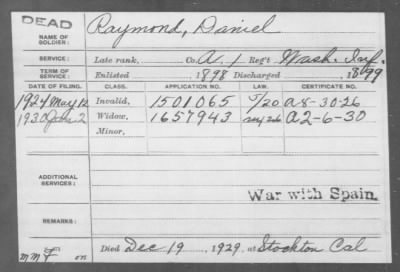 DEAD
NAME OF SOLDIER: Raymond, Daniel
SERVICE: Late rank, Co. A, 1 Reg't Wash. Inf.
TERM OF SERVICE: Enlisted 1898 Discharged 1899
DATE OF FILING. CLASS. APPLICATION NO. LAW. CERTIFICATE NO.
1924 May 12 Invalid, 1501065 5/20 A 8-30-26
1930 Jan 2 Widow, 1657943 A 2-6-30
Minor,
ADDITIONAL SERVICES:
War with Spain.
REMARKS:
Died Dec 19, 1929, at Stockton Cal